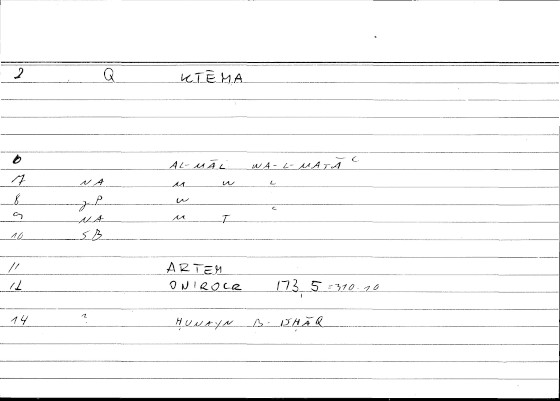 2 Q KTĒMA
6 AL-MĀL WA-L-MATĀʿ
7 NA M W L
8 gP W
9 NA M T ʿ
10 SB
11 ARTEM
12 ONIROCR 173,5 = 310.10
14 ? ḤUNAYN B. ISḤĀQ